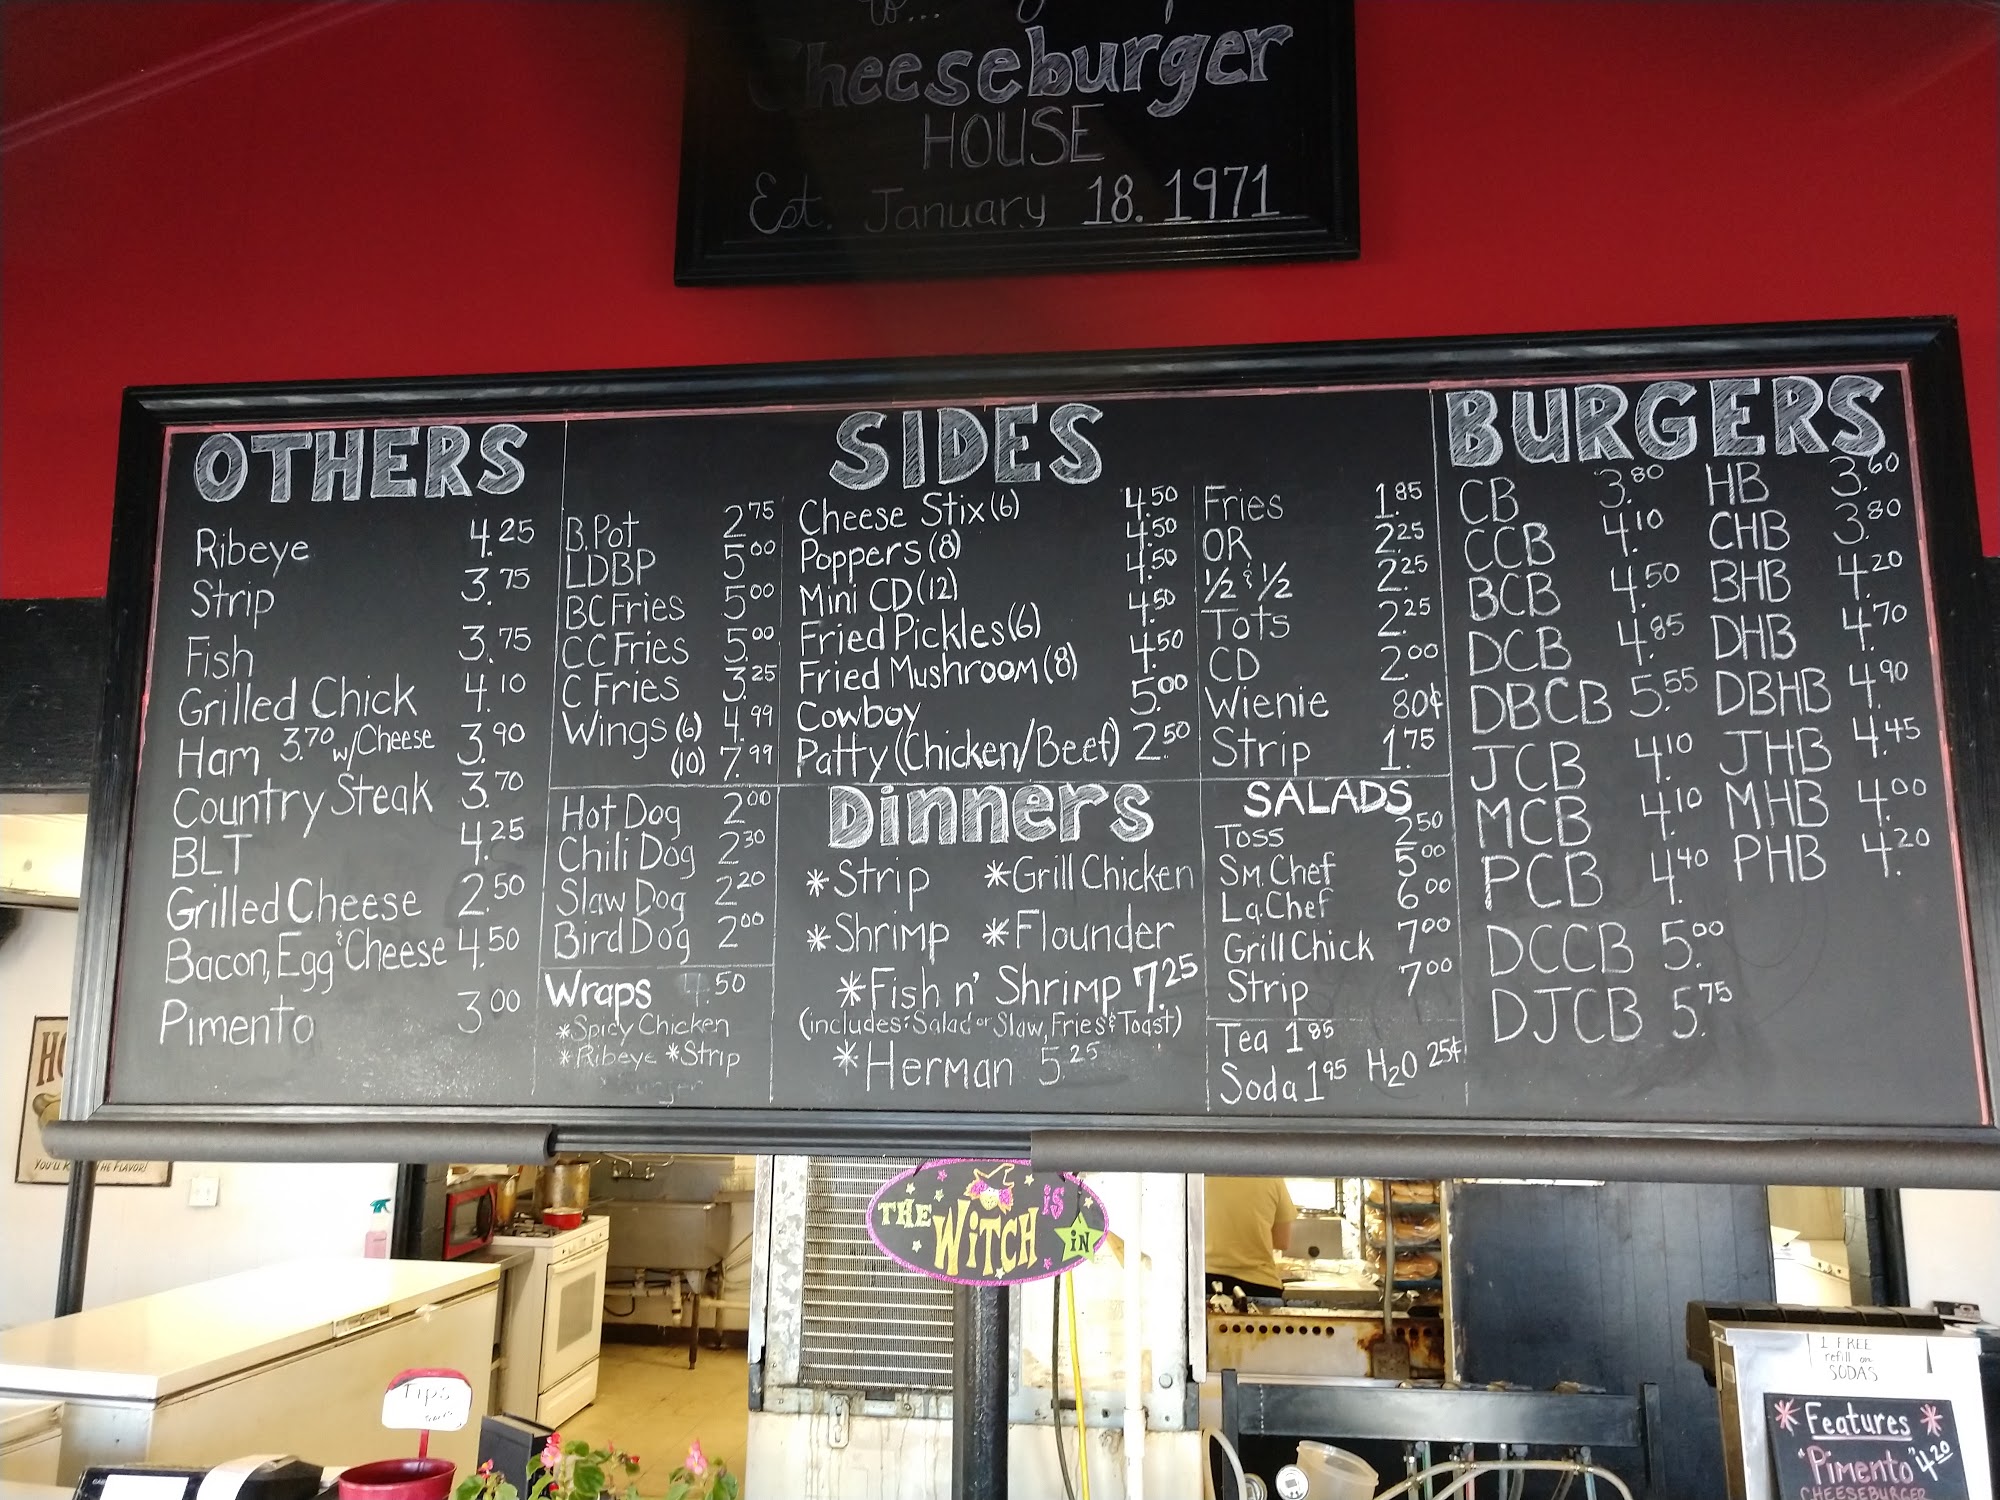 to...
Cheeseburger
HOUSE
Est. January 18. 1971
OTHERS
Ribeye 4.25
Strip 3.75
Fish 3.75
Grilled Chick 4.10
Ham 3.70 w/Cheese 3.90
Country Steak 3.70
BLT 4.25
Grilled Cheese 2.50
Bacon, Egg & Cheese 4.50
Pimento 3.00
SIDES
B.Pot 2.75
LDBP 5.00
BC Fries 5.00
CC Fries 5.00
C Fries 3.25
Wings (6) 4.99
(10) 7.99
Cheese Stix (6) 4.50
Poppers (8) 4.50
Mini CD (12) 4.50
Fried Pickles (6) 4.50
Fried Mushroom (8) 4.50
Cowboy 5.00
Patty (Chicken/Beef) 2.50
Fries 1.85
OR 2.25
1/2 & 1/2 2.25
Tots 2.25
CD 2.00
Wienie 80¢
Strip 1.75
Hot Dog 2.00
Chili Dog 2.30
Slaw Dog 2.20
Bird Dog 2.00
Wraps 4.50
*Spicy Chicken
*Ribeye *Strip
Dinners
*Strip *Grill Chicken
*Shrimp *Flounder
*Fish n' Shrimp 7.25
(includes: Salad or Slaw, Fries & Toast)
*Herman 5.25
SALADS
Toss 2.50
Sm. Chef 5.00
Lg. Chef 6.00
Grill Chick 7.00
Strip 7.00
Tea 1.85
Soda 1.95 H2O 25¢
BURGERS
CB 3.80 HB 3.60
CCB 4.10 CHB 3.80
BCB 4.50 BHB 4.20
DCB 4.85 DHB 4.70
DBCB 5.55 DBHB 4.90
JCB 4.10 JHB 4.45
MCB 4.10 MHB 4.00
PCB 4.40 PHB 4.20
DCCB 5.00
DJCB 5.75
THE WITCH is iN
HO
YOU'LL THE FLAVOR!
Tips
1 FREE
refill on
SODAS
*Features*
"Pimento" 4.20
CHEESEBURGER